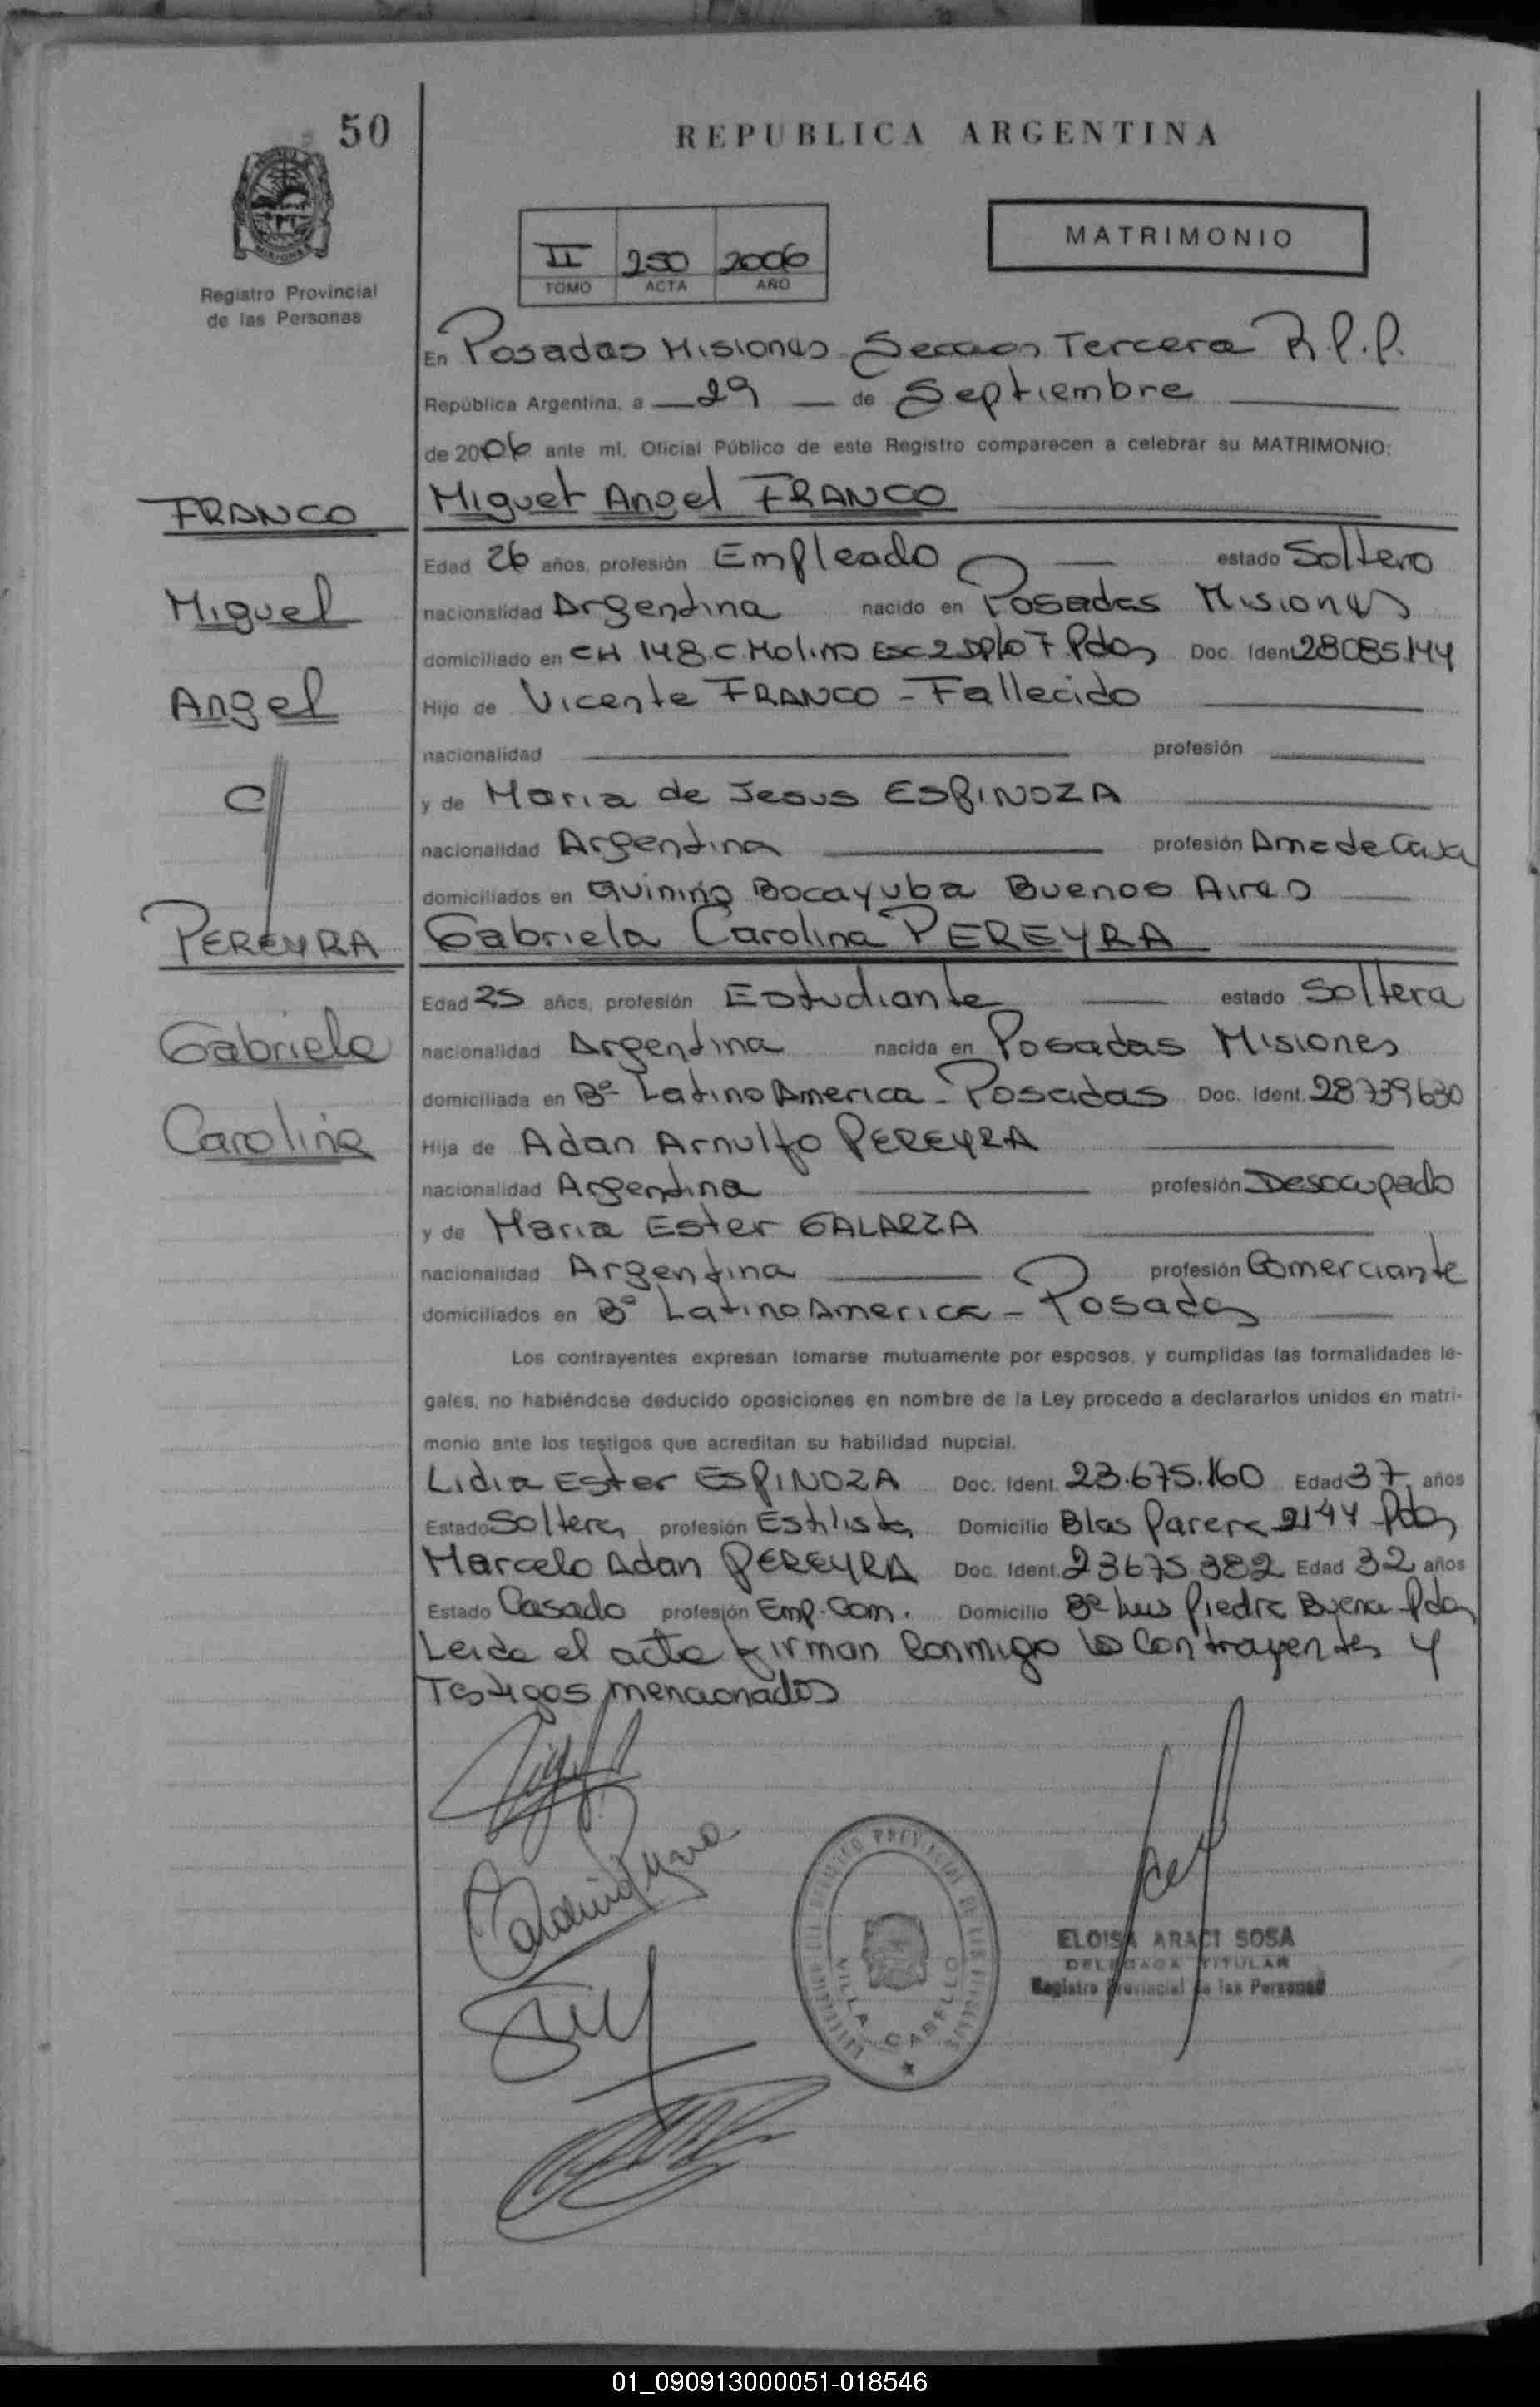 50
REPUBLICA ARGENTINA
MATRIMONIO
II 250 2006
TOMO ACTA AÑO
Registro Provincial
de las Personas
En Posadas Misiones Seccion Tercera R.P.P.
República Argentina, a 29 de Septiembre
de 2006 ante mi, Oficial Público de este Registro comparecen a celebrar su MATRIMONIO:
FRANCO
Miguel Angel FRANCO
Edad 26 años, profesión Empleado estado Soltero
Miguel
nacionalidad Argentina nacido en Posadas Misiones
domiciliado en CH 148 C. Molino Esc 2 Dpto 7 Pdas Doc. Ident. 28085.144
Angel
Hijo de Vicente FRANCO - Fallecido
nacionalidad profesión
c/
y de Maria de Jesus ESPINOZA
nacionalidad Argentina profesión Ama de Casa
domiciliados en Quinino Bocayuba Buenos Aires
PEREYRA
Gabriela Carolina PEREYRA
Edad 25 años, profesión Estudiante estado Soltera
Gabriela
nacionalidad Argentina nacida en Posadas Misiones
domiciliada en Bº Latino America - Posadas Doc. Ident. 28739630
Carolina
Hija de Adan Arnulfo PEREYRA
nacionalidad Argentina profesión Desocupado
y de Maria Ester GALARZA
nacionalidad Argentina profesión Comerciante
domiciliados en Bº Latino America - Posadas
Los contrayentes expresan tomarse mutuamente por esposos, y cumplidas las formalidades le-
gales, no habiéndose deducido oposiciones en nombre de la Ley procedo a declararlos unidos en matri-
monio ante los testigos que acreditan su habilidad nupcial.
Lidia Ester ESPINOZA Doc. Ident. 23.675.160 Edad 37 años
Estado Soltera profesión Estilista Domicilio Blas Parera 2144 Pdas
Marcelo Adan PEREYRA Doc. Ident. 23675.382 Edad 32 años
Estado Casado profesión Emp. Com. Domicilio Bº Luis Piedra Buena Pdas
Leida el acta firman conmigo los contrayentes y
Testigos mencionados
VILLA CABELLO
ELOISA ARACI SOSA
DELEGADA TITULAR
Registro Provincial de las Personas
01_090913000051-018546